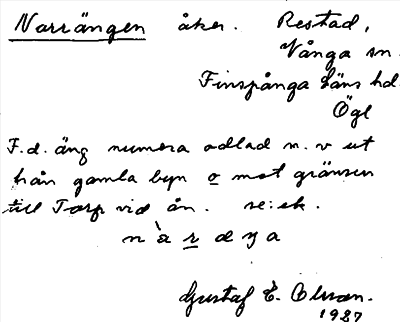 Norrängen åker. Restad,
Vånga sn.
Finspånga läns hd.
Ögl
F.d. äng numera odlad n.v ut
från gamla byn o mot gränsen
till Torp vid ån. se: ek.
n à r d y a
Gustaf E. Olsson.
1927